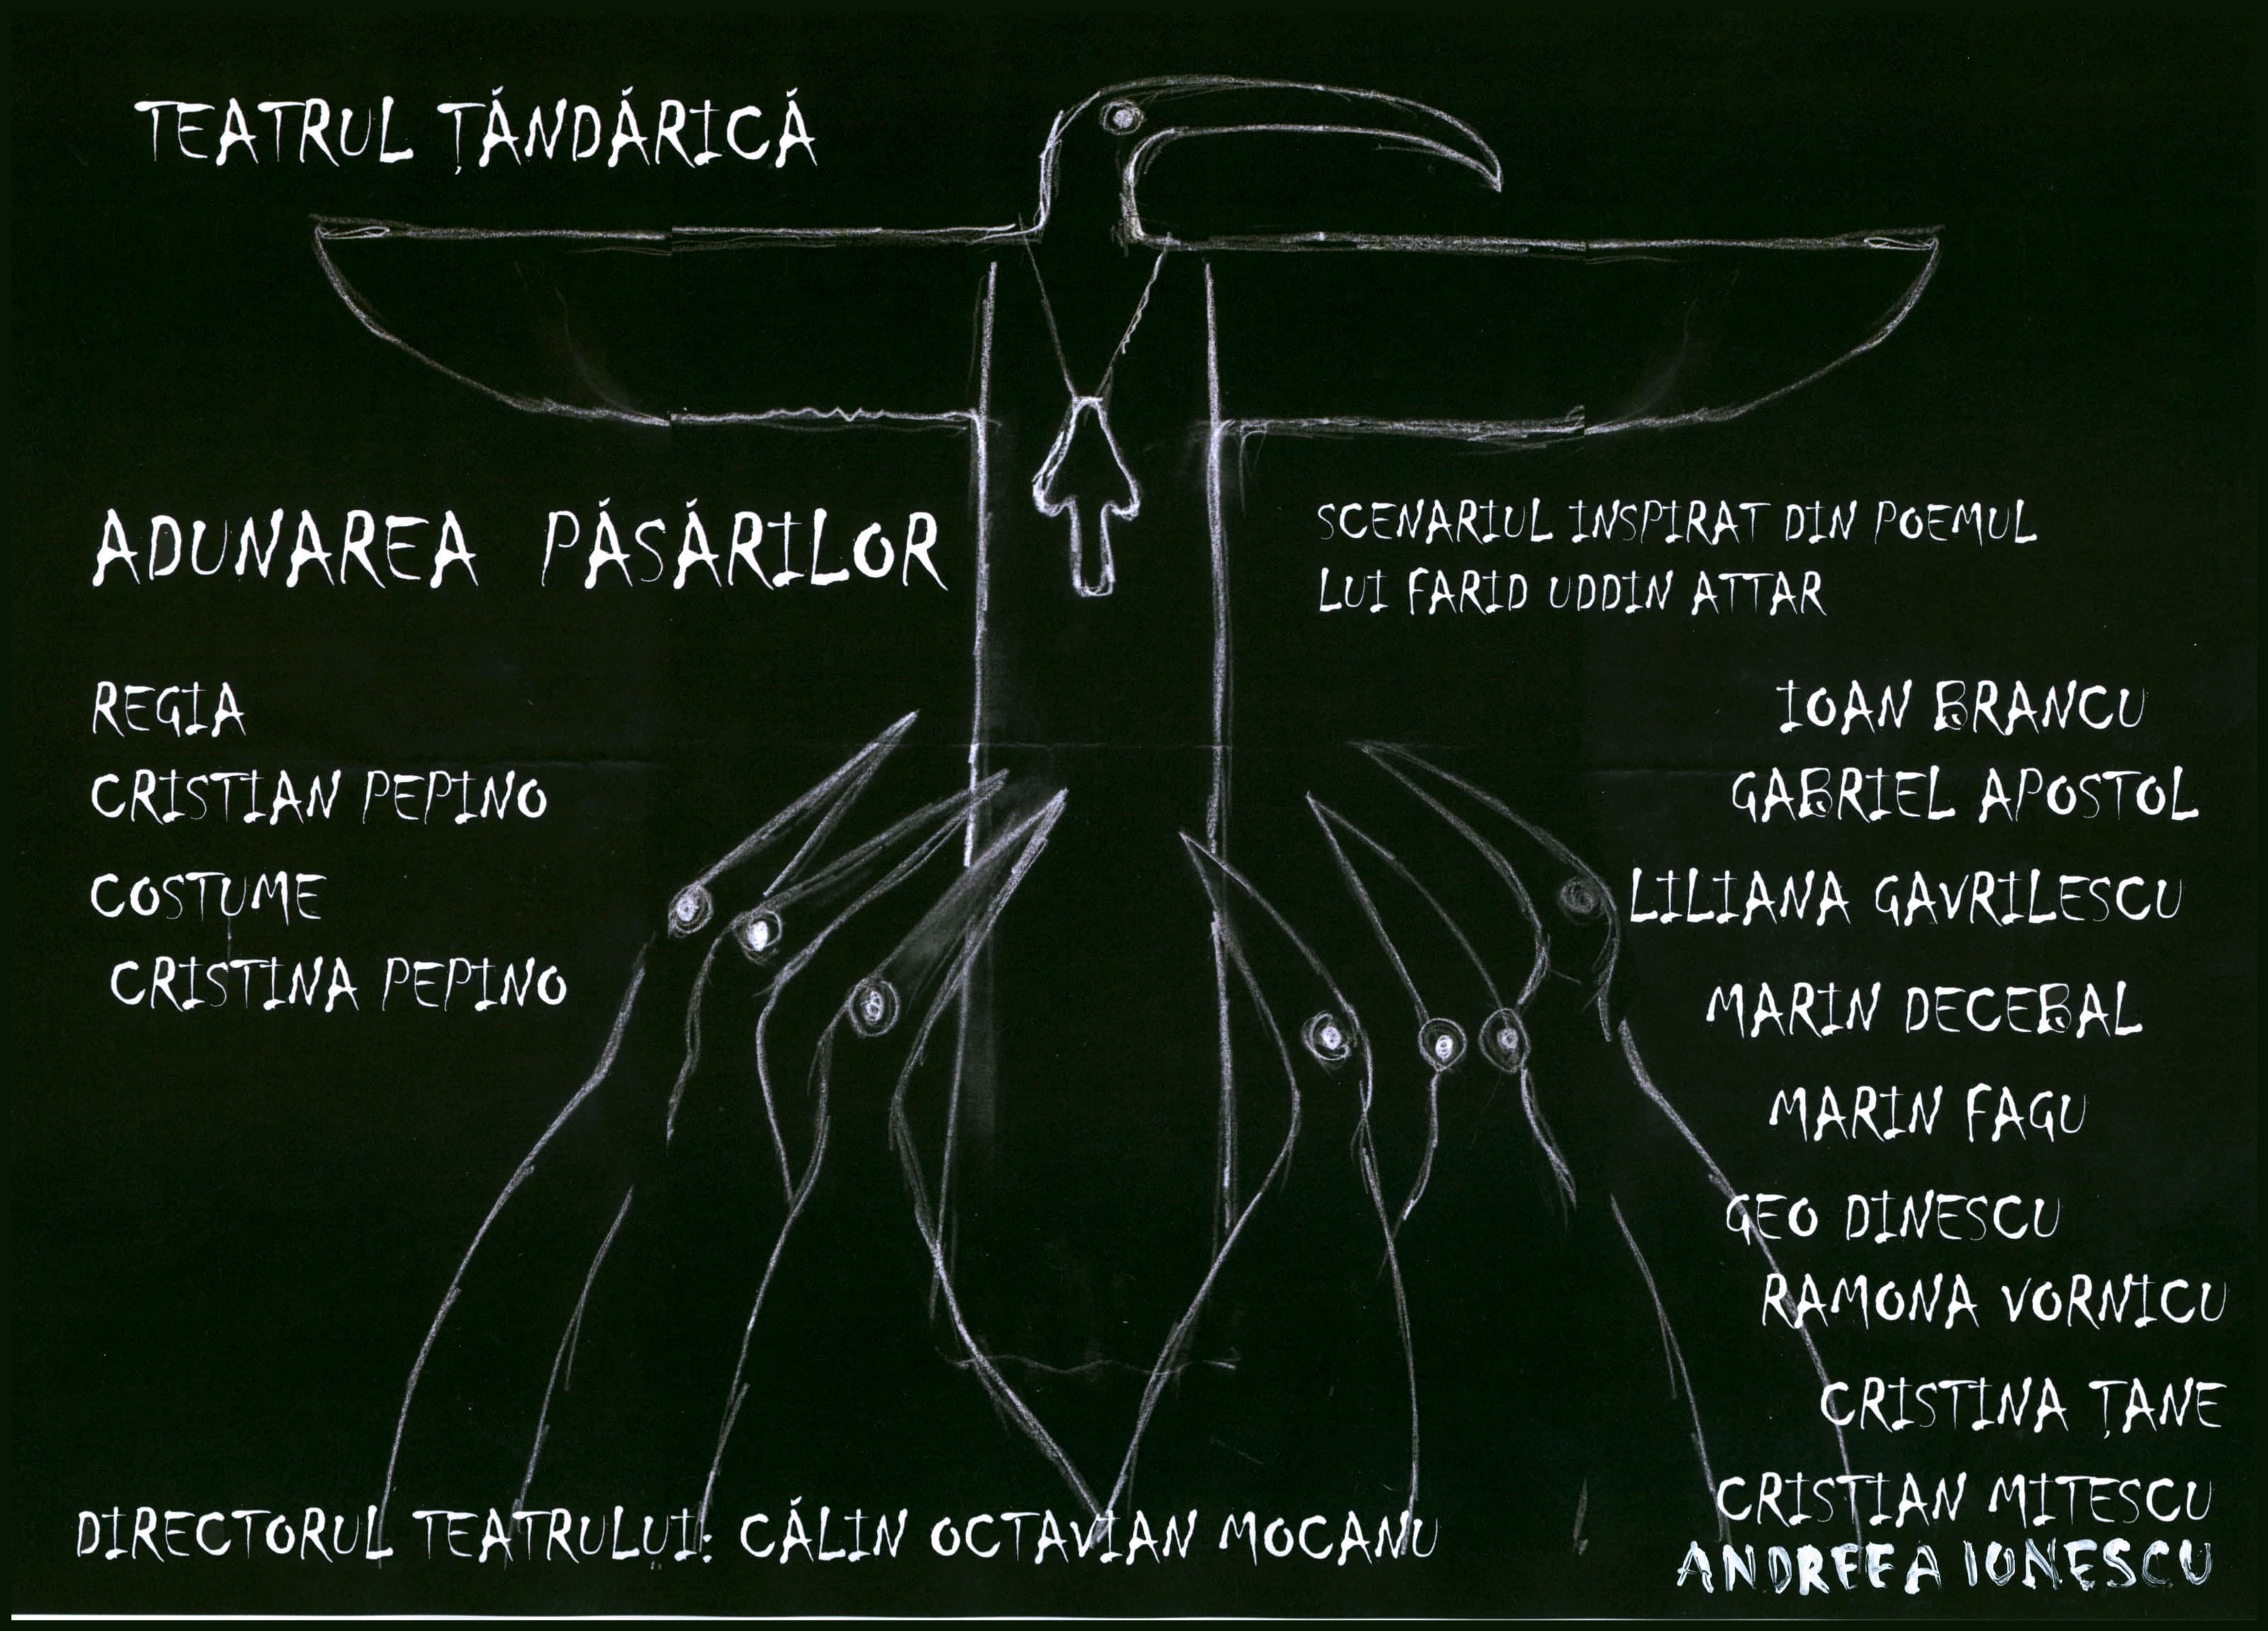 TEATRUL ȚĂNDĂRICĂ
ADUNAREA PĂSĂRILOR
SCENARIUL INSPIRAT DIN POEMUL
LUI FARID UDDIN ATTAR
REGIA
CRISTIAN PEPINO
COSTUME
CRISTINA PEPINO
IOAN BRANCU
GABRIEL APOSTOL
LILIANA GAVRILESCU
MARIN DECEBAL
MARIN FAGU
GEO DINESCU
RAMONA VORNICU
CRISTINA ȚANE
CRISTIAN MITESCU
ANDREEA IONESCU
DIRECTORUL TEATRULUI: CĂLIN OCTAVIAN MOCANU